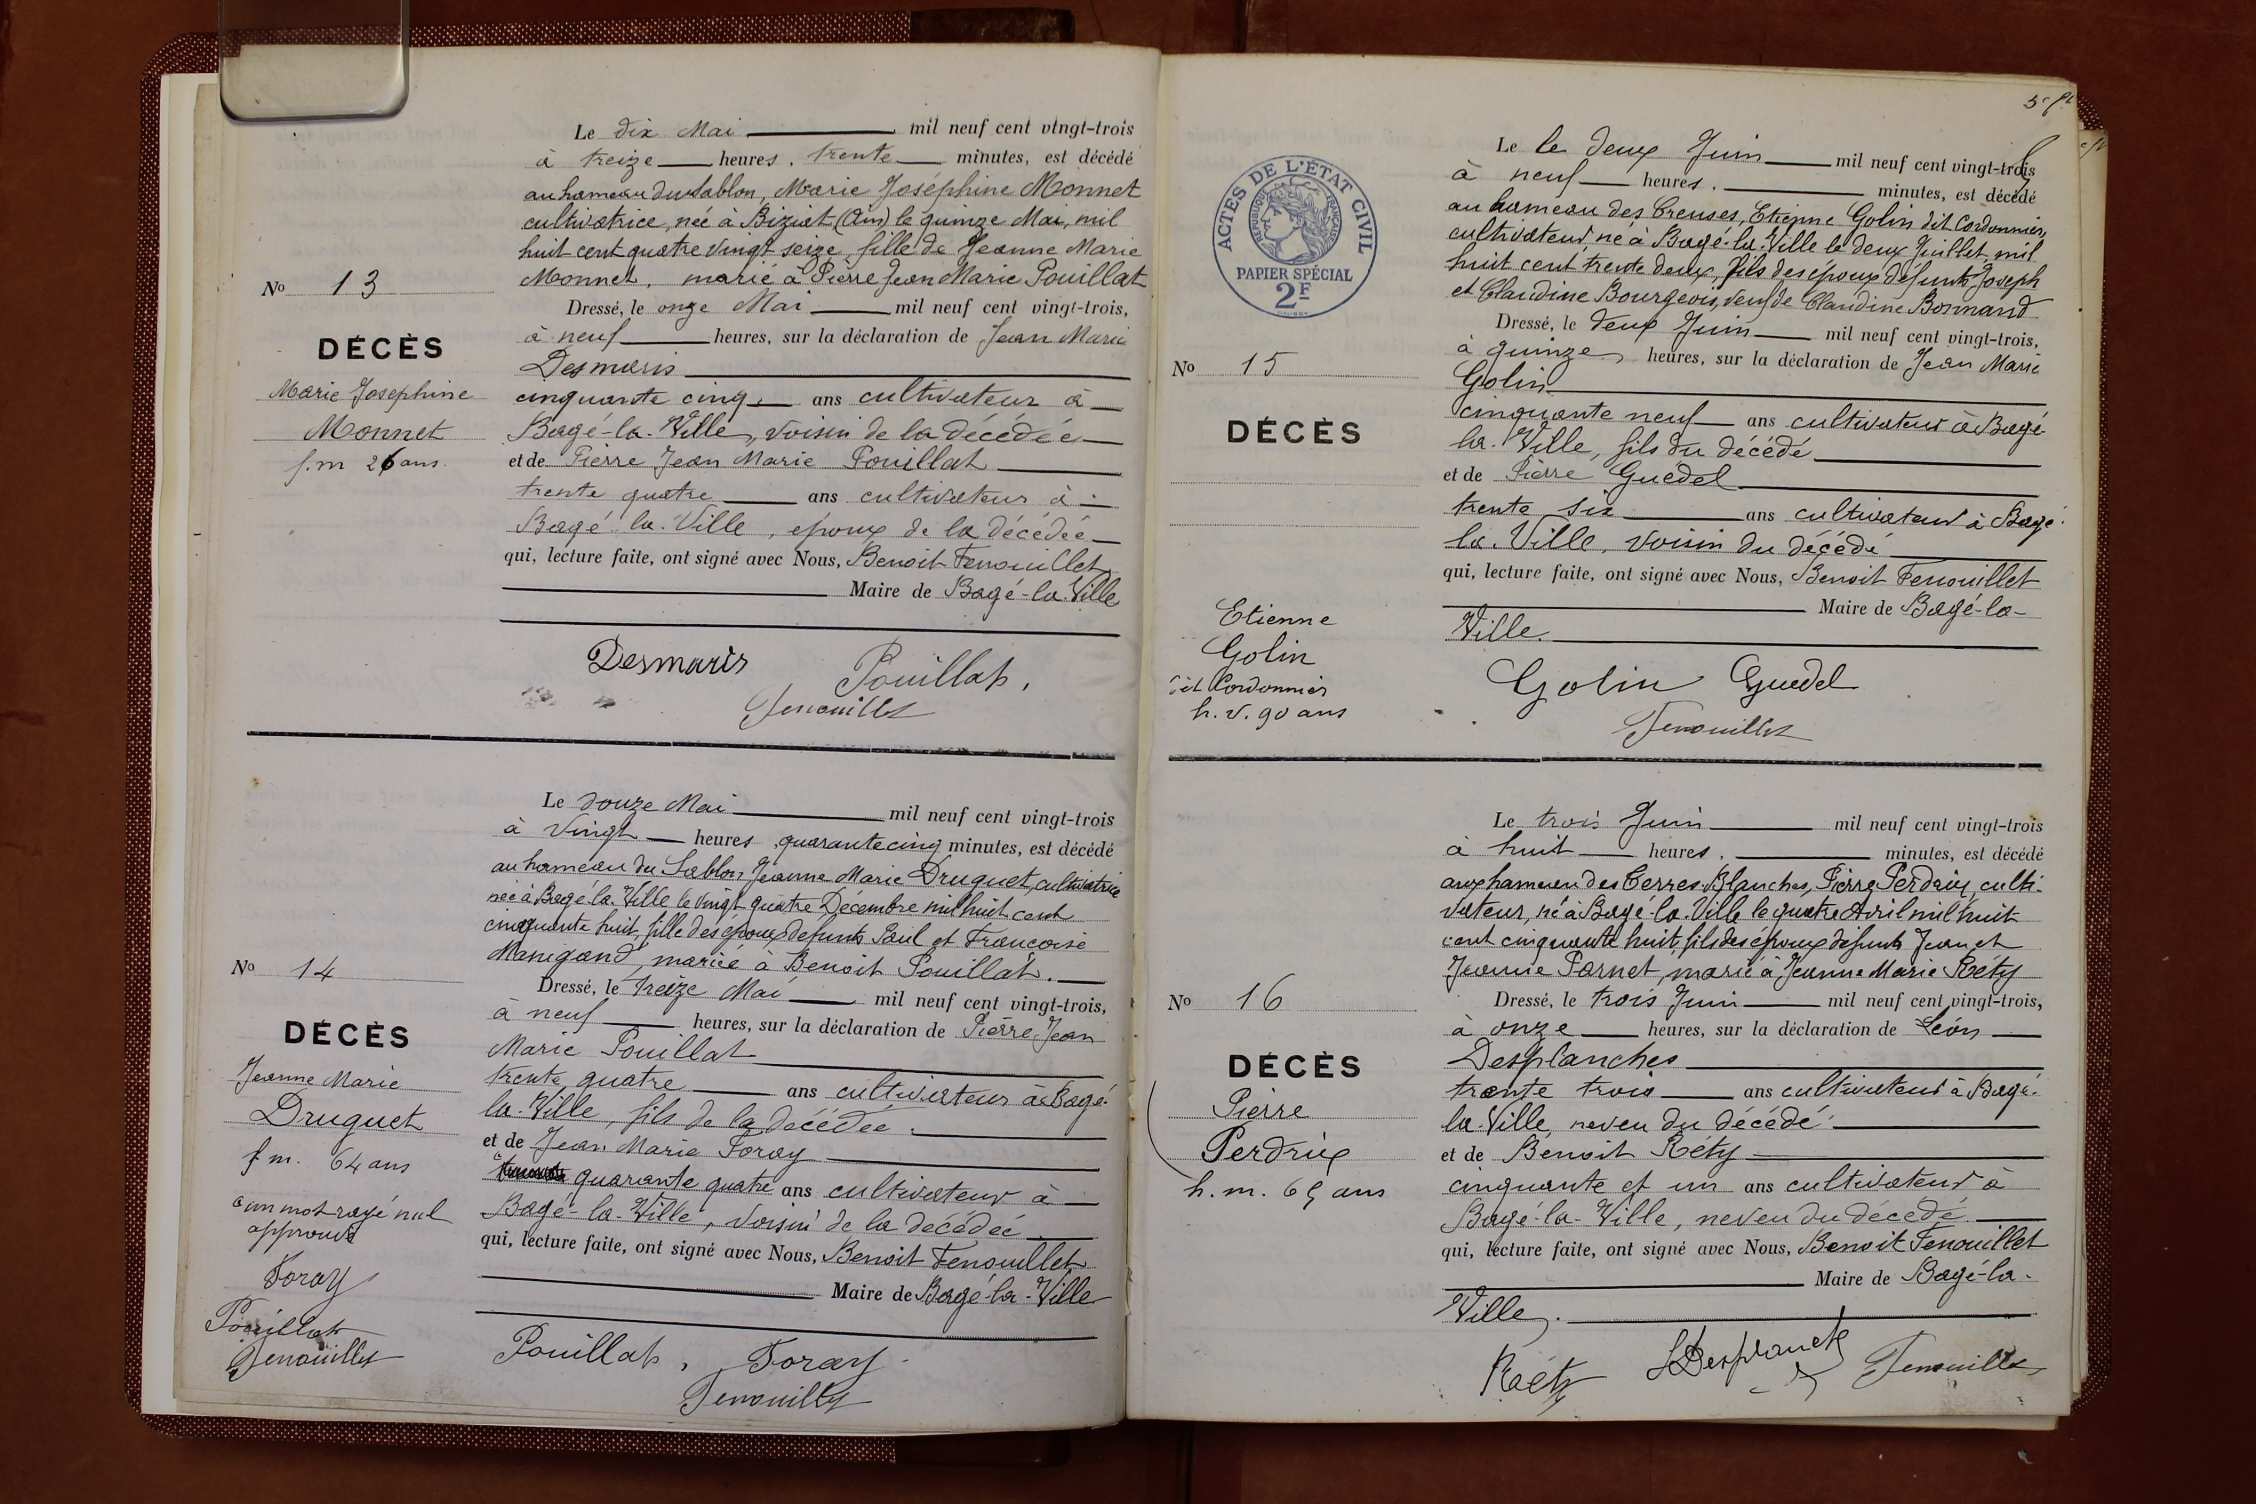 Le dix Mai mil neuf cent vingt-trois
à treize heures, trente minutes, est décédé
au hameau du Sablon, Marie Joséphine Monnet
cultivatrice, née à Biziat (Ain) le quinze Mai, mil
huit cent quatre vingt seize, fille de Jeanne Marie
Monnet, marié à Pierre Jean Marie Pouillat
Dressé, le onze Mai mil neuf cent vingt-trois,
à neuf heures, sur la déclaration de Jean Marie
Desmaris
cinquante cinq ans cultivateur à
Bagé-la-Ville, voisin de la décédée
et de Pierre Jean Marie Pouillat
trente quatre ans cultivateur à
Bagé-la-Ville, époux de la décédée
qui, lecture faite, ont signé avec Nous, Benoit Fenouillet
Maire de Bagé-la-Ville
Desmaris
Pouillat,
Fenouillet
No 13
DÉCÈS
Marie Josephine
Monnet
f.m 26 ans
Le douze Mai mil neuf cent vingt-trois
à vingt heures, quarante cinq minutes, est décédé
au hameau du Sablon, Jeanne Marie Druguet, cultivatrice
née à Bagé-la-Ville le vingt quatre Décembre mil huit cent
cinquante huit, fille des époux défunts Paul et Francoise
Manigand, mariée à Benoit Pouillat.
Dressé, le treize Mai mil neuf cent vingt-trois,
à neuf heures, sur la déclaration de Pierre Jean
Marie Pouillat
trente quatre ans cultivateur à Bagé-
la-Ville, fils de la décédée.
et de Jean Marie Foray
quarante quatre ans cultivateur à
Bagé-la-Ville, voisin de la décédée
qui, lecture faite, ont signé avec Nous, Benoit Fenouillet
Maire de Bagé-la-Ville
Pouillat, Foray
Fenouillet
No 14
DÉCÈS
Jeanne Marie
Druguet
f m. 64 ans
un mot rayé nul
approuvé
Foray
Pouillat
Fenouillet
5e ft
ACTES DE L'ÉTAT CIVIL
RÉPUBLIQUE FRANÇAISE
PAPIER SPÉCIAL
2F
Le le deux Juin mil neuf cent vingt-trois
à neuf heures, minutes, est décédé
au hameau des Creuses, Etienne Golin dit Cordonnier,
cultivateur, né à Bagé-la-Ville le deux Juillet, mil
huit cent trente deux, fils des époux défunts Joseph
et Claudine Bourgeois, veuf de Claudine Bonnand
Dressé, le deux Juin mil neuf cent vingt-trois,
à quinze heures, sur la déclaration de Jean Marie
Golin
cinquante neuf ans cultivateur à Bagé
la-Ville, fils du décédé
et de Pierre Guedel
trente six ans cultivateur à Bagé-
la-Ville, voisin du décédé
qui, lecture faite, ont signé avec Nous, Benoit Fenouillet
Maire de Bagé-la-
Ville.
Golin Guedel
Fenouillet
No 15
DÉCÈS
Etienne
Golin
dit Cordonnier
h. v. 90 ans
Le trois Juin mil neuf cent vingt-trois
à huit heures, minutes, est décédé
aux hameau des Terres Blanches, Pierre Perdrix, culti-
vateur, né à Bagé-la-Ville le quatre Avril mil huit
cent cinquante huit, fils des époux défunts Jean et
Jeanne Parnet, marié à Jeanne Marie Réty
Dressé, le trois Juin mil neuf cent vingt-trois,
à onze heures, sur la déclaration de Léon
Desplanches
trente trois ans cultivateur à Bagé-
la-Ville, neveu du décédé.
et de Benoit Réty
cinquante et un ans cultivateur à
Bagé-la-Ville, neveu du décédé.
qui, lecture faite, ont signé avec Nous, Benoit Fenouillet
Maire de Bagé-la-
Ville.
Réty LDesplanche Fenouillet
No 16
DÉCÈS
Pierre
Perdrix
h. m. 65 ans